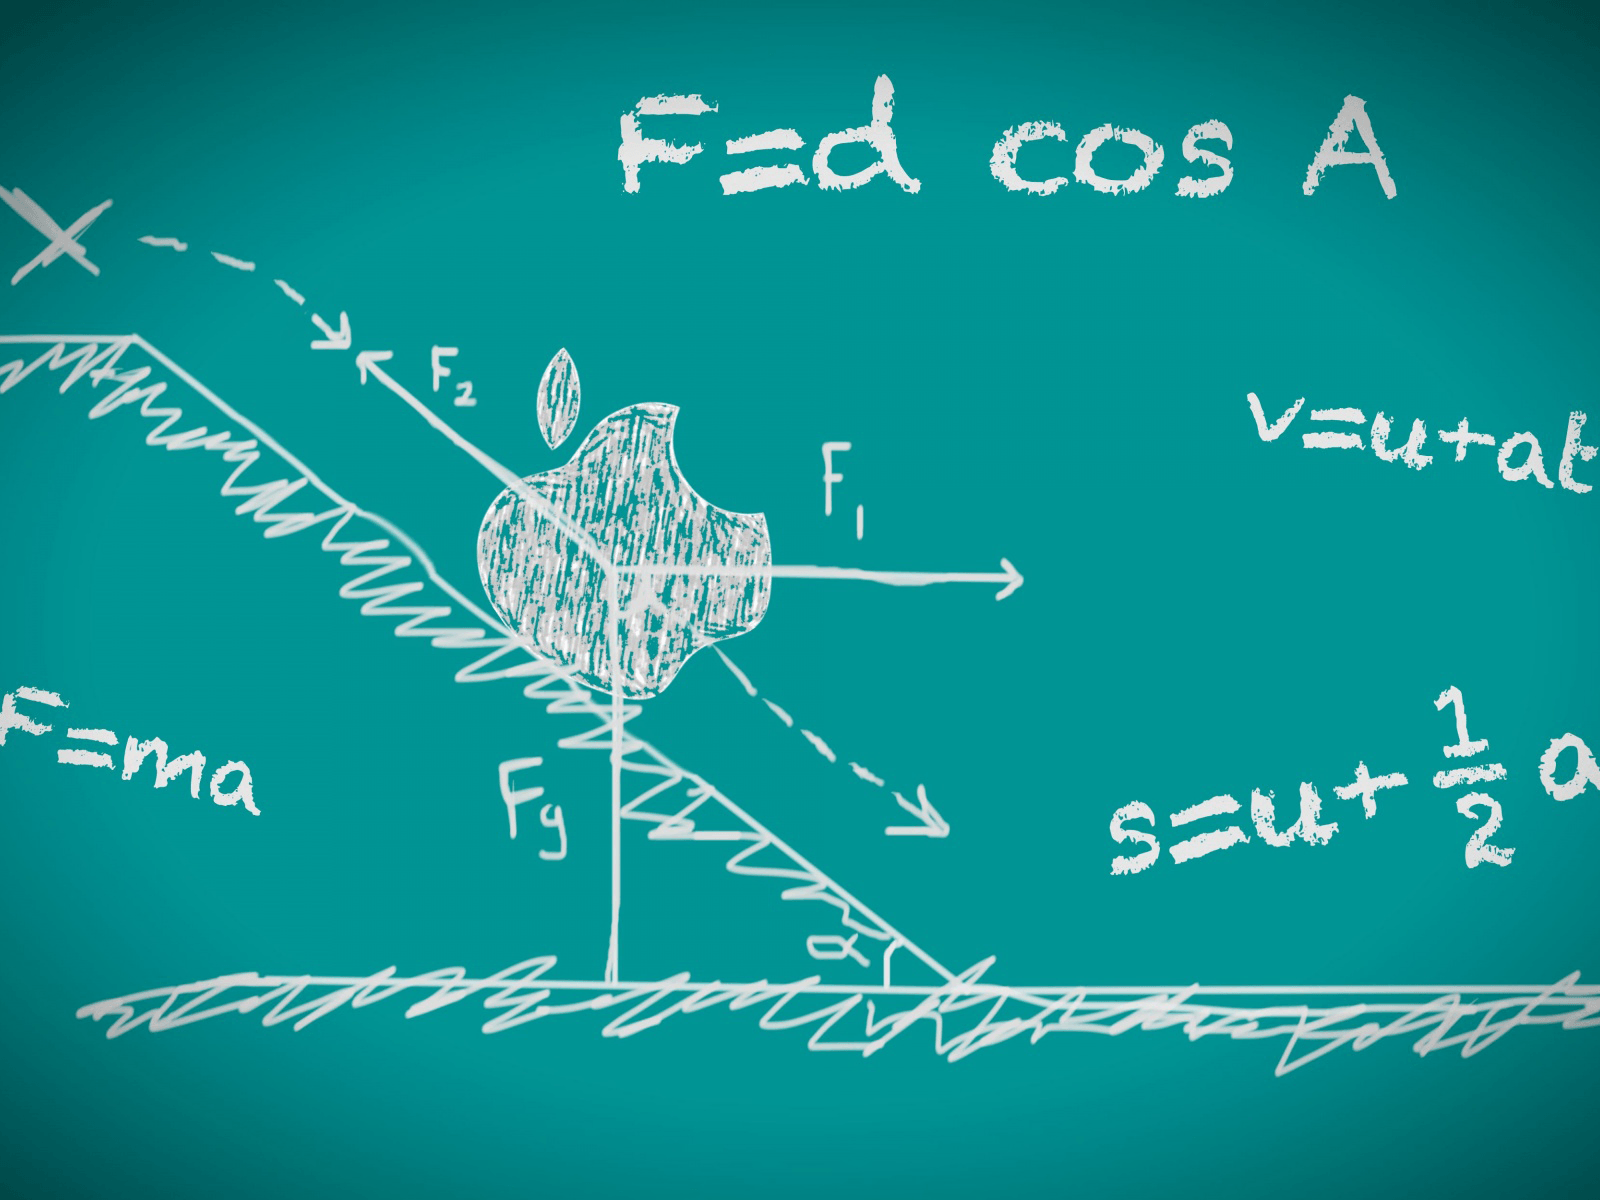 F=d cos A
F₂
F₁
v=u+at
F=ma
Fg
s=u+ 1/2 a
α